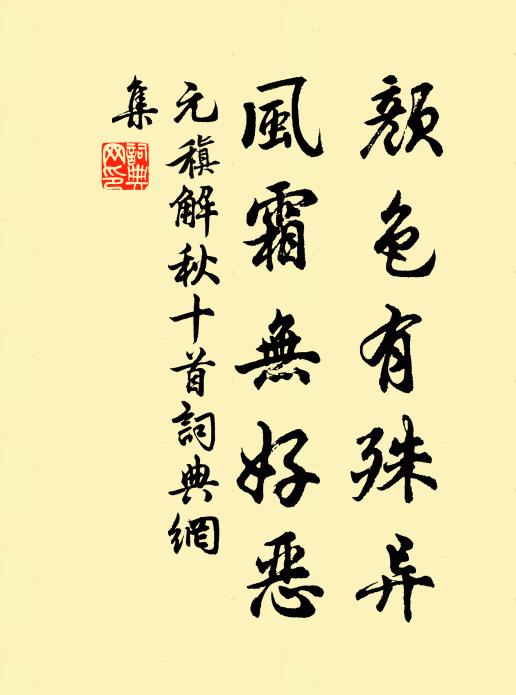 顔色有殊异
風霜無好惡
元稹解秋十首詞典網
集
詞典網印